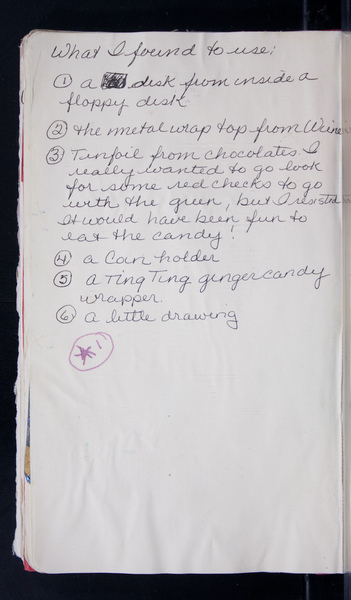 What I found to use;
① a disk from inside a
floppy disk.
② the metal wrap top from Wine
③ Tinfoil from chocolates. I
really wanted to go look
for some red checks to go
with the green, but I resisted
It would have been fun to
eat the candy!
④ a Coin holder
⑤ a Ting Ting ginger candy
wrapper.
⑥ a little drawing